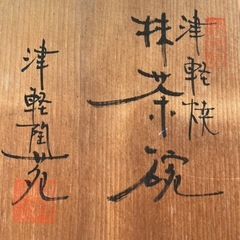 津軽焼
抹茶碗
津軽陶苑